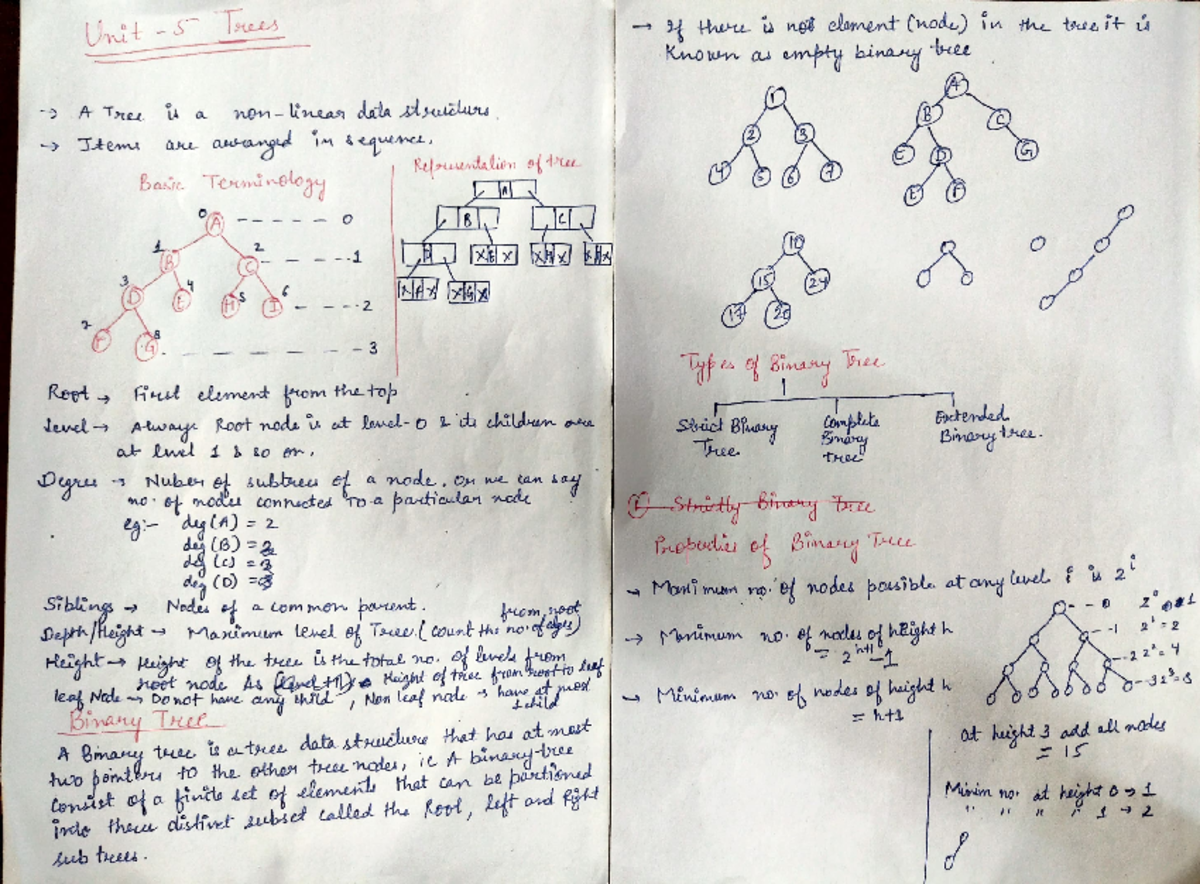 Unit - 5 Trees
→ A Tree is a non-linear data structure.
→ Items are arranged in sequence.
Basic Terminology
0 A - - - - - - 0
1 B 2 C - - - - - 1
3 D 4 E H 5 I 6 - - - - 2
7 F G 8 - - - - - - - 3
Representation of tree
A
B C
D X E X X H X X I X
X F X X G X
Root → First element from the top
Level → Always Root node is at level-0 & its children are
at level 1 & so on.
Degree → Nuber of subtrees of a node. Or we can say
no. of nodes connected to a particular node
eg:- deg (A) = 2
deg (B) =
deg (C) = 3
deg (D) = 3
Siblings → Nodes of a common parent.
Depth/Height → Maximum level of Tree. (count the no. of edges) from root
Height → Height of the tree is the total no. of levels from
root node As Height of tree from root to leaf
leaf Node → Do not have any child , Non leaf node → have at most
1 child
Binary Tree
A Binary tree is a tree data structure that has at most
two pointers to the other tree nodes, ie A binary-tree
consist of a finite set of elements that can be partioned
into three distinct subset called the Root, left and Right
sub trees.
→ If there is not element (node) in the tree it is
Known as empty binary tree
1
2 3
4 5 6 7
A
B C
C D G
E F
10
15 24
17 20
Types of Binary Tree
Strict Binary
Tree
Complete
Binary
tree
Extended
Binary tree.
Strictly Binary Tree
Properties of Binary Tree
→ Maximum no. of nodes possible at any level i is 2^i
→ Maximum no. of nodes of height h
= 2^h+1 - 1
→ Minimum no. of nodes of height h
= h+1
- - 0 2^0 1
- 1 2^1 = 2
- 2 2^2 = 4
- 3 2^3 = 8
at height 3 add all nodes
= 15
Minim no. at height 0 → 1
" " " " 1 → 2